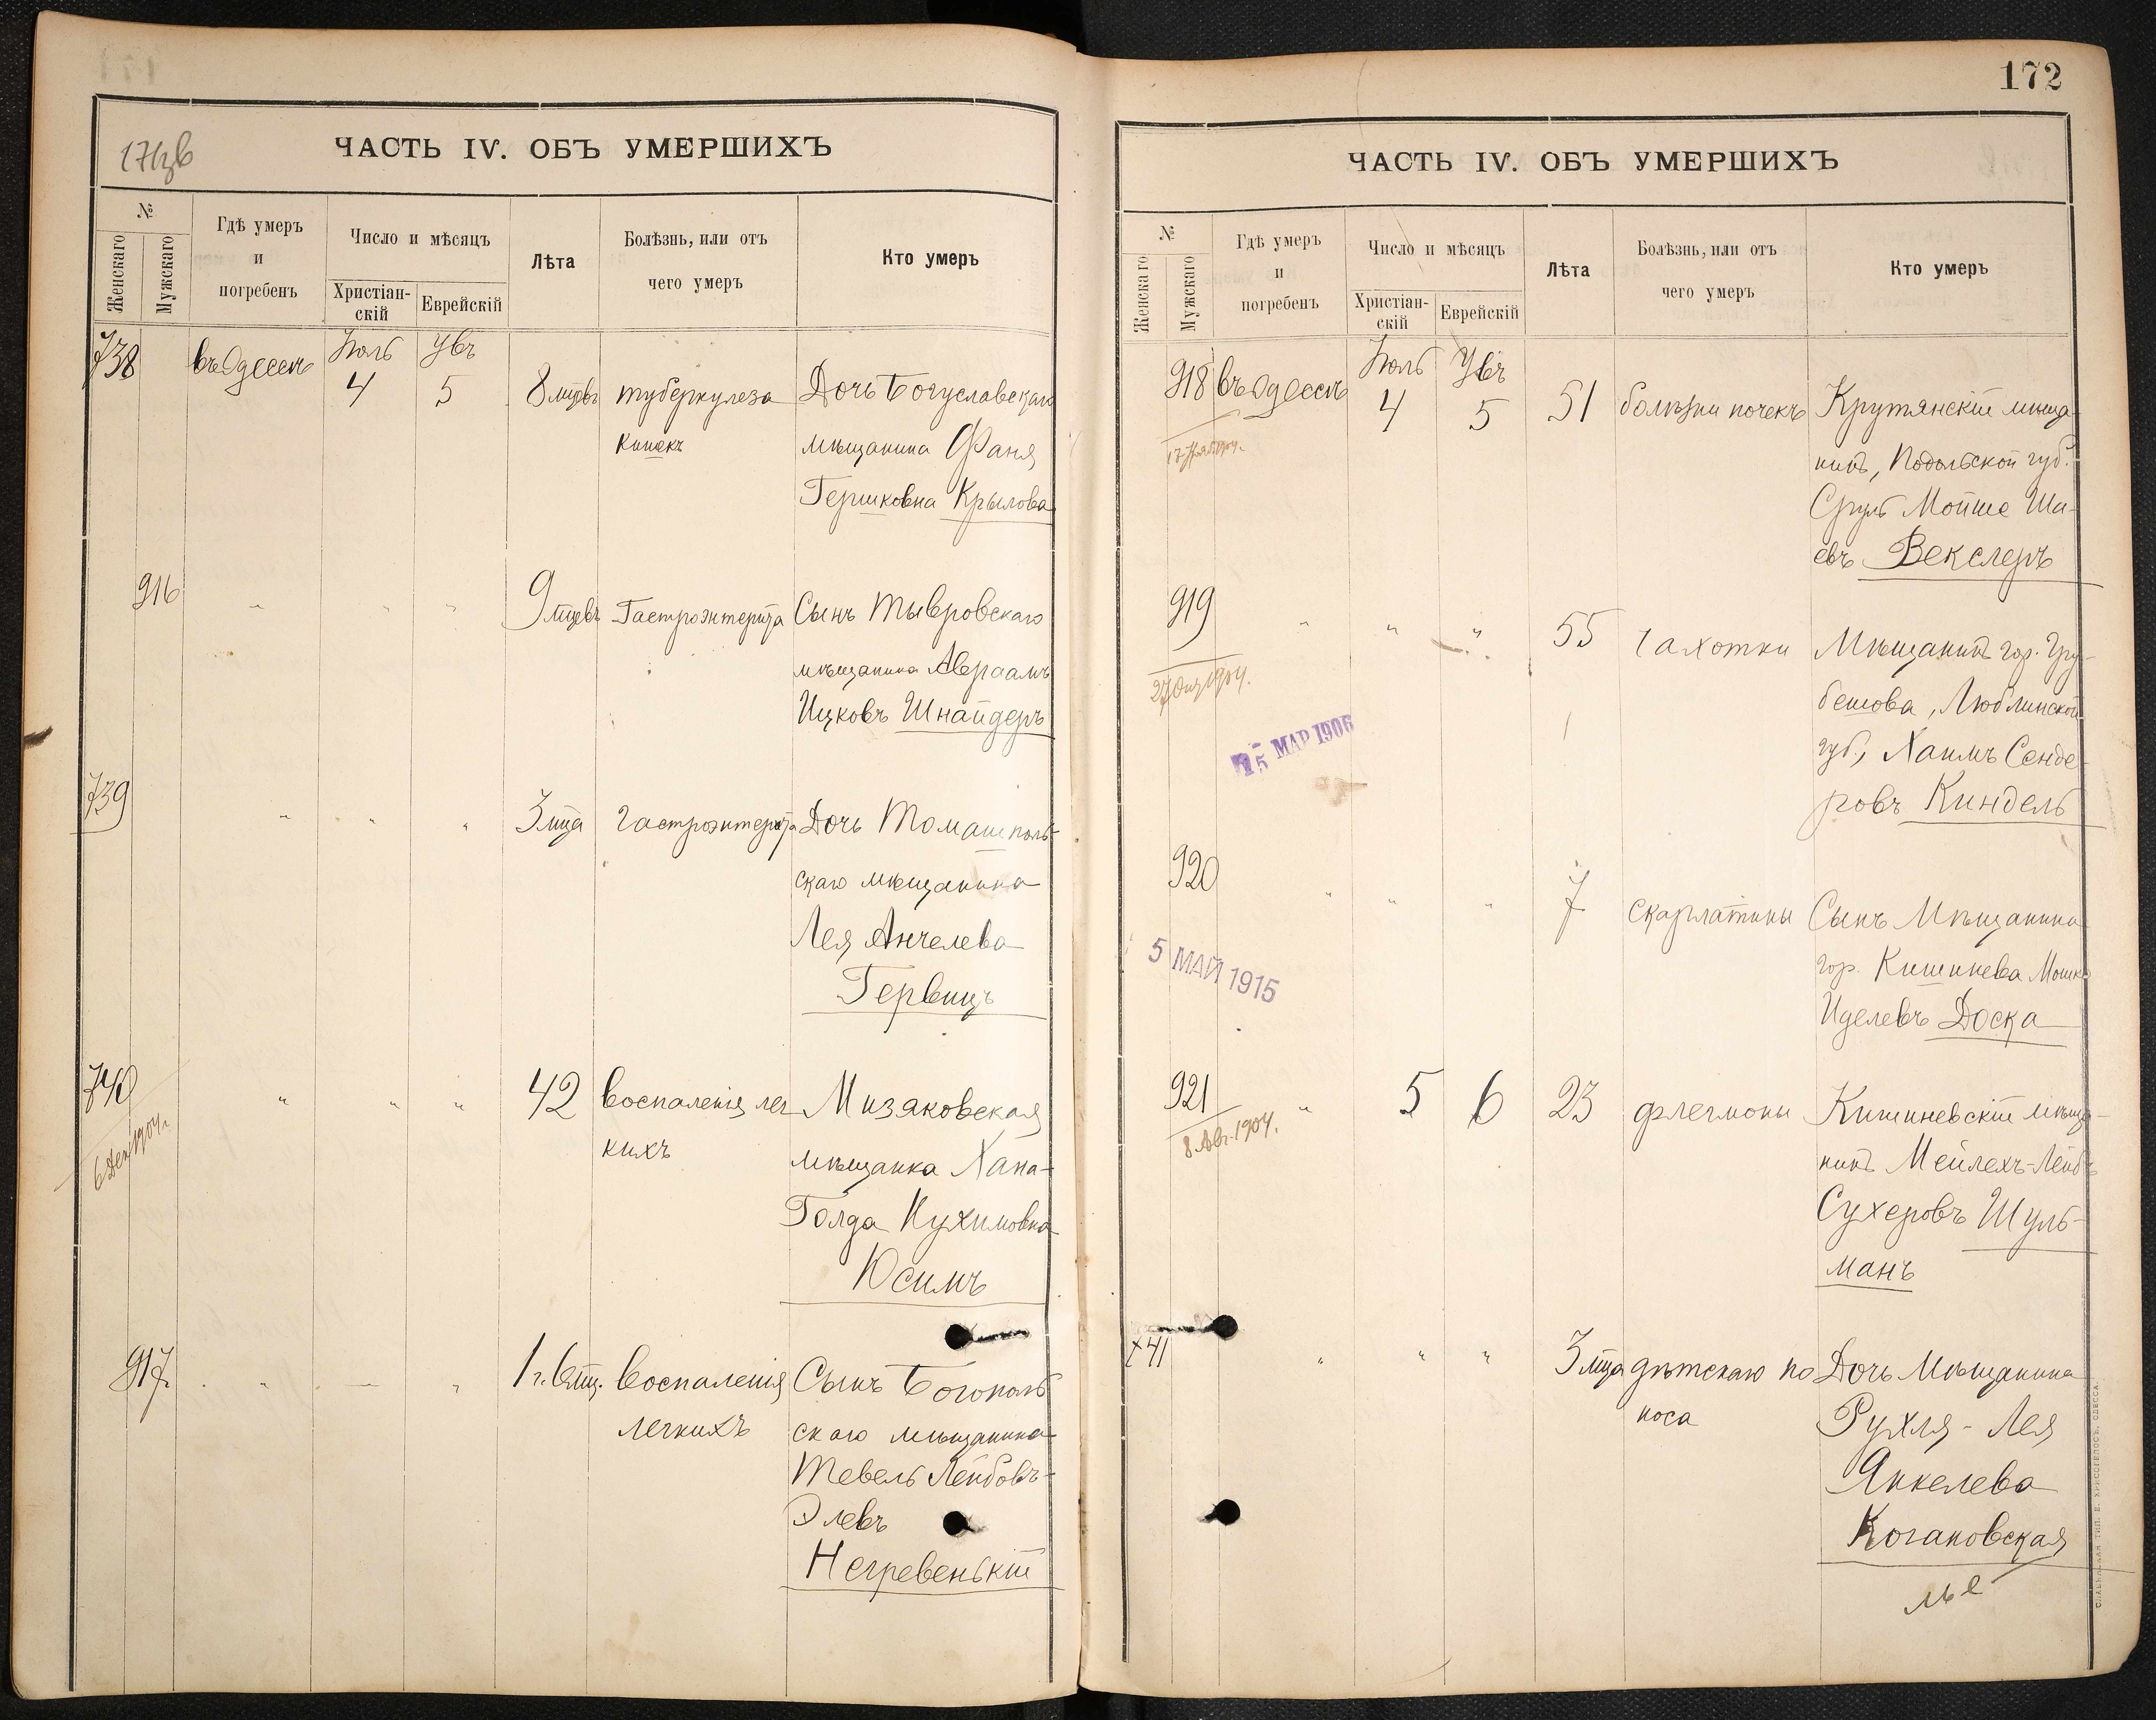 171зв
ЧАСТЬ IV. ОБЪ УМЕРШИХЪ
№
Женскаго
Мужскаго
Гдѣ умеръ
и
погребенъ
Число и мѣсяцъ
Христіан-
скій
Еврейскій
Лѣта
Болѣзнь, или отъ
чего умеръ
Кто умеръ
738 въ Одессѣ Іюль 4 Увъ 5 8 мцевъ туберкулеза Дочь Богуславскаго
кишекъ мѣщанина Фаня
Гершковна Крылова
916 " " " 9 мцевъ Гастроэнтерита Сынъ Тывровскаго
мѣщанина Авраамъ
Ицковъ Шнайдеръ
739 " " " 3 мца гастроэнтерита Дочь Томашполь-
скаго мѣщанина
Лея Анчелева
Гервицъ
740 " " " 42 воспаленія лег Мизяковская
6 Дек 1904 г. кихъ мѣщанка Хана-
Голда Нухимовна
Юсимъ
917 " " " 1 г. 6 мц. воспаленія Сынъ Богополь
легкихъ скаго мѣщанина
Тевель Лейбовъ-
Элевъ
Негревенькій
172
ЧАСТЬ IV. ОБЪ УМЕРШИХЪ
№
Женскаго
Мужскаго
Гдѣ умеръ
и
погребенъ
Число и мѣсяцъ
Христіан-
скій
Еврейскій
Лѣта
Болѣзнь, или отъ
чего умеръ
Кто умеръ
918 въ Одессѣ Іюль 4 Увъ 5 51 болѣзни почекъ Крутянскій мѣща-
нинъ, Подольской губ.
Сруль Мойше Ша-
евъ Векслеръ
919 " " " 55 чахотки Мѣщанинъ гор. Гру-
бешова, Люблинской
губ., Хаимъ Сенде-
ровъ Киндель
15 МАР 1906
920 " " " 7 скарлатины Сынъ Мѣщанина
гор. Кишинева Мошко
Иделевъ Доска
5 МАЙ 1915
921 " 5 6 23 флегмоны Кишиневскій мѣща-
8 Авг. 1904. нинъ Мейлехъ-Лейбъ
Сухеровъ Шуль-
манъ
741 " " " 3 мца дѣтскаго по Дочь Мѣщанина
носа Рухля-Лея
Янкелева
Когановская